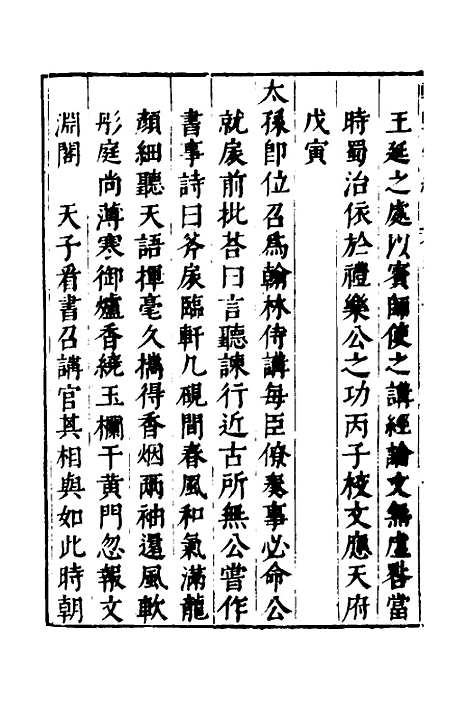 王延之處以賓師使之講經論文無虛晷當
時蜀治依於禮樂公之功丙子校文應天府
戊寅
太孫卽位召爲翰林侍講每臣僚奏事必命公
就扆前批荅曰言聽諫行近古所無公嘗作
書事詩曰斧扆臨軒几硯間春風和氣滿龍
顏細聽天語揮毫久攜得香烟兩袖還風軟
彤庭尚薄寒御爐香繞玉欄干黄門忽報文
淵閣　天子看書召講官其相與如此時朝